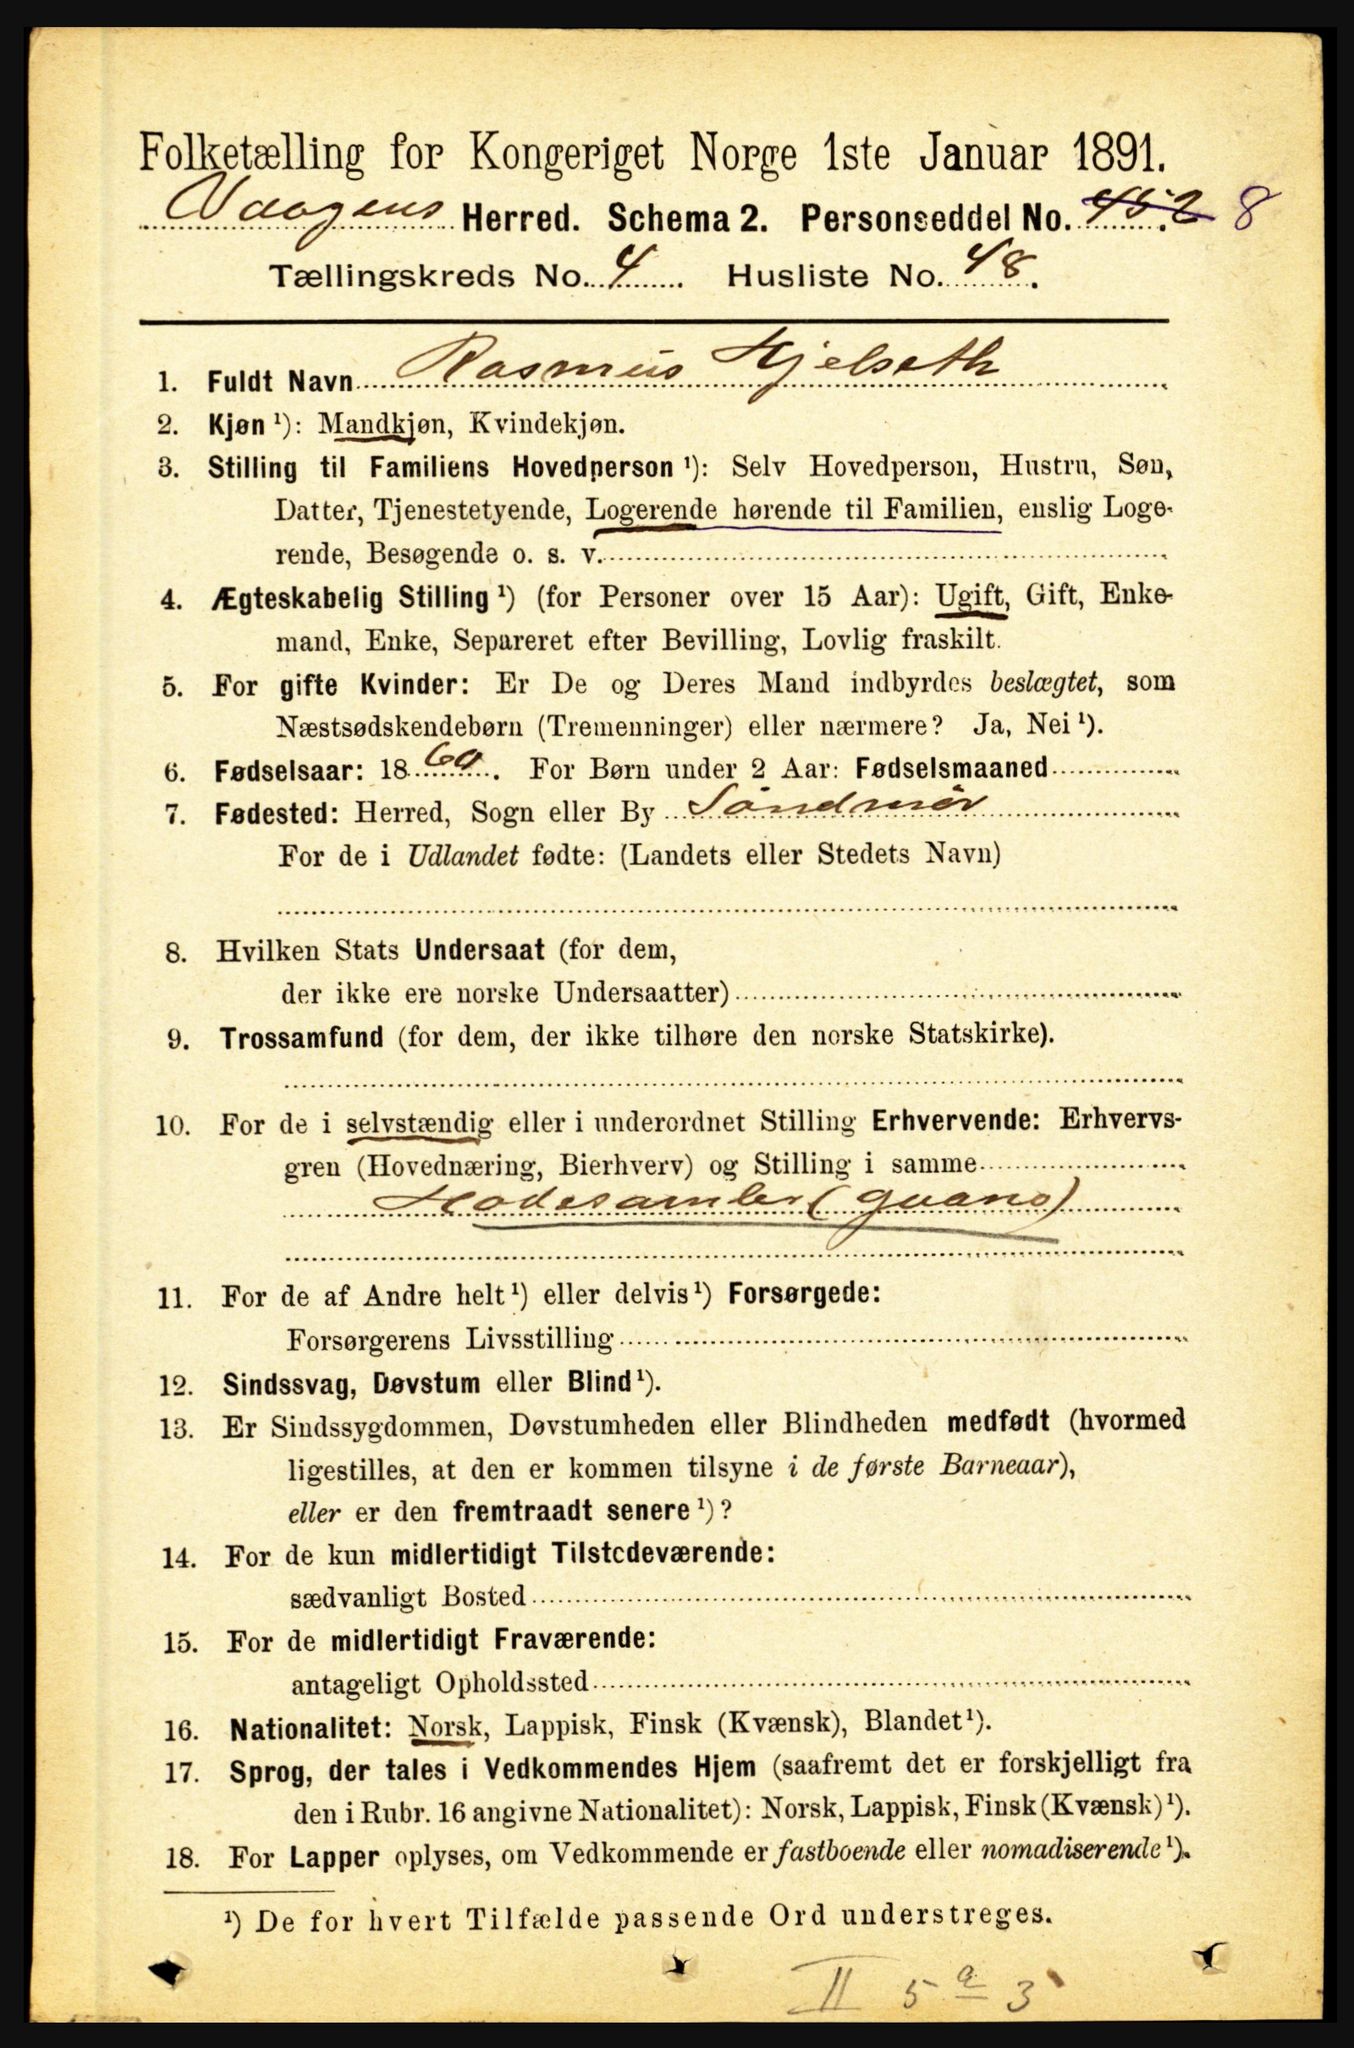 Folketælling for Kongeriget Norge 1ste Januar 1891.
Vaagens Herred. Schema 2. Personseddel No. 452 8
Tællingskreds No. 4. Husliste No. 48.
1. Fuldt Navn Rasmus Hjelseth
2. Kjøn ¹): Mandkjøn, Kvindekjøn.
3. Stilling til Familiens Hovedperson ¹): Selv Hovedperson, Hustru, Søn,
Datter, Tjenestetyende, Logerende hørende til Familien, enslig Loge-
rende, Besøgende o. s. v.
4. Ægteskabelig Stilling ¹) (for Personer over 15 Aar): Ugift, Gift, Enke-
mand, Enke, Separeret efter Bevilling, Lovlig fraskilt.
5. For gifte Kvinder: Er De og Deres Mand indbyrdes beslægtet, som
Næstsødskendebørn (Tremenninger) eller nærmere? Ja, Nei ¹).
6. Fødselsaar: 18 . For Børn under 2 Aar: Fødselsmaaned
7. Fødested: Herred, Sogn eller By Söndmör
For de i Udlandet fødte: (Landets eller Stedets Navn)
8. Hvilken Stats Undersaat (for dem,
der ikke ere norske Undersaatter)
9. Trossamfund (for dem, der ikke tilhøre den norske Statskirke).
10. For de i selvstændig eller i underordnet Stilling Erhvervende: Erhvervs-
gren (Hovednæring, Bierhverv) og Stilling i samme
Hodesamler (guano)
11. For de af Andre helt ¹) eller delvis ¹) Forsørgede:
Forsørgerens Livsstilling
12. Sindssvag, Døvstum eller Blind ¹).
13. Er Sindssygdommen, Døvstumheden eller Blindheden medfødt (hvormed
ligestilles, at den er kommen tilsyne i de første Barneaar),
eller er den fremtraadt senere ¹)?
14. For de kun midlertidigt Tilstedeværende:
sædvanligt Bosted
15. For de midlertidigt Fraværende:
antageligt Opholdssted
16. Nationalitet: Norsk, Lappisk, Finsk (Kvænsk), Blandet ¹).
17. Sprog, der tales i Vedkommendes Hjem (saafremt det er forskjelligt fra
den i Rubr. 16 angivne Nationalitet): Norsk, Lappisk, Finsk (Kvænsk) ¹).
18. For Lapper oplyses, om Vedkommende er fastboende eller nomadiserende ¹).
¹) De for hvert Tilfælde passende Ord understreges.
II 5 a 3